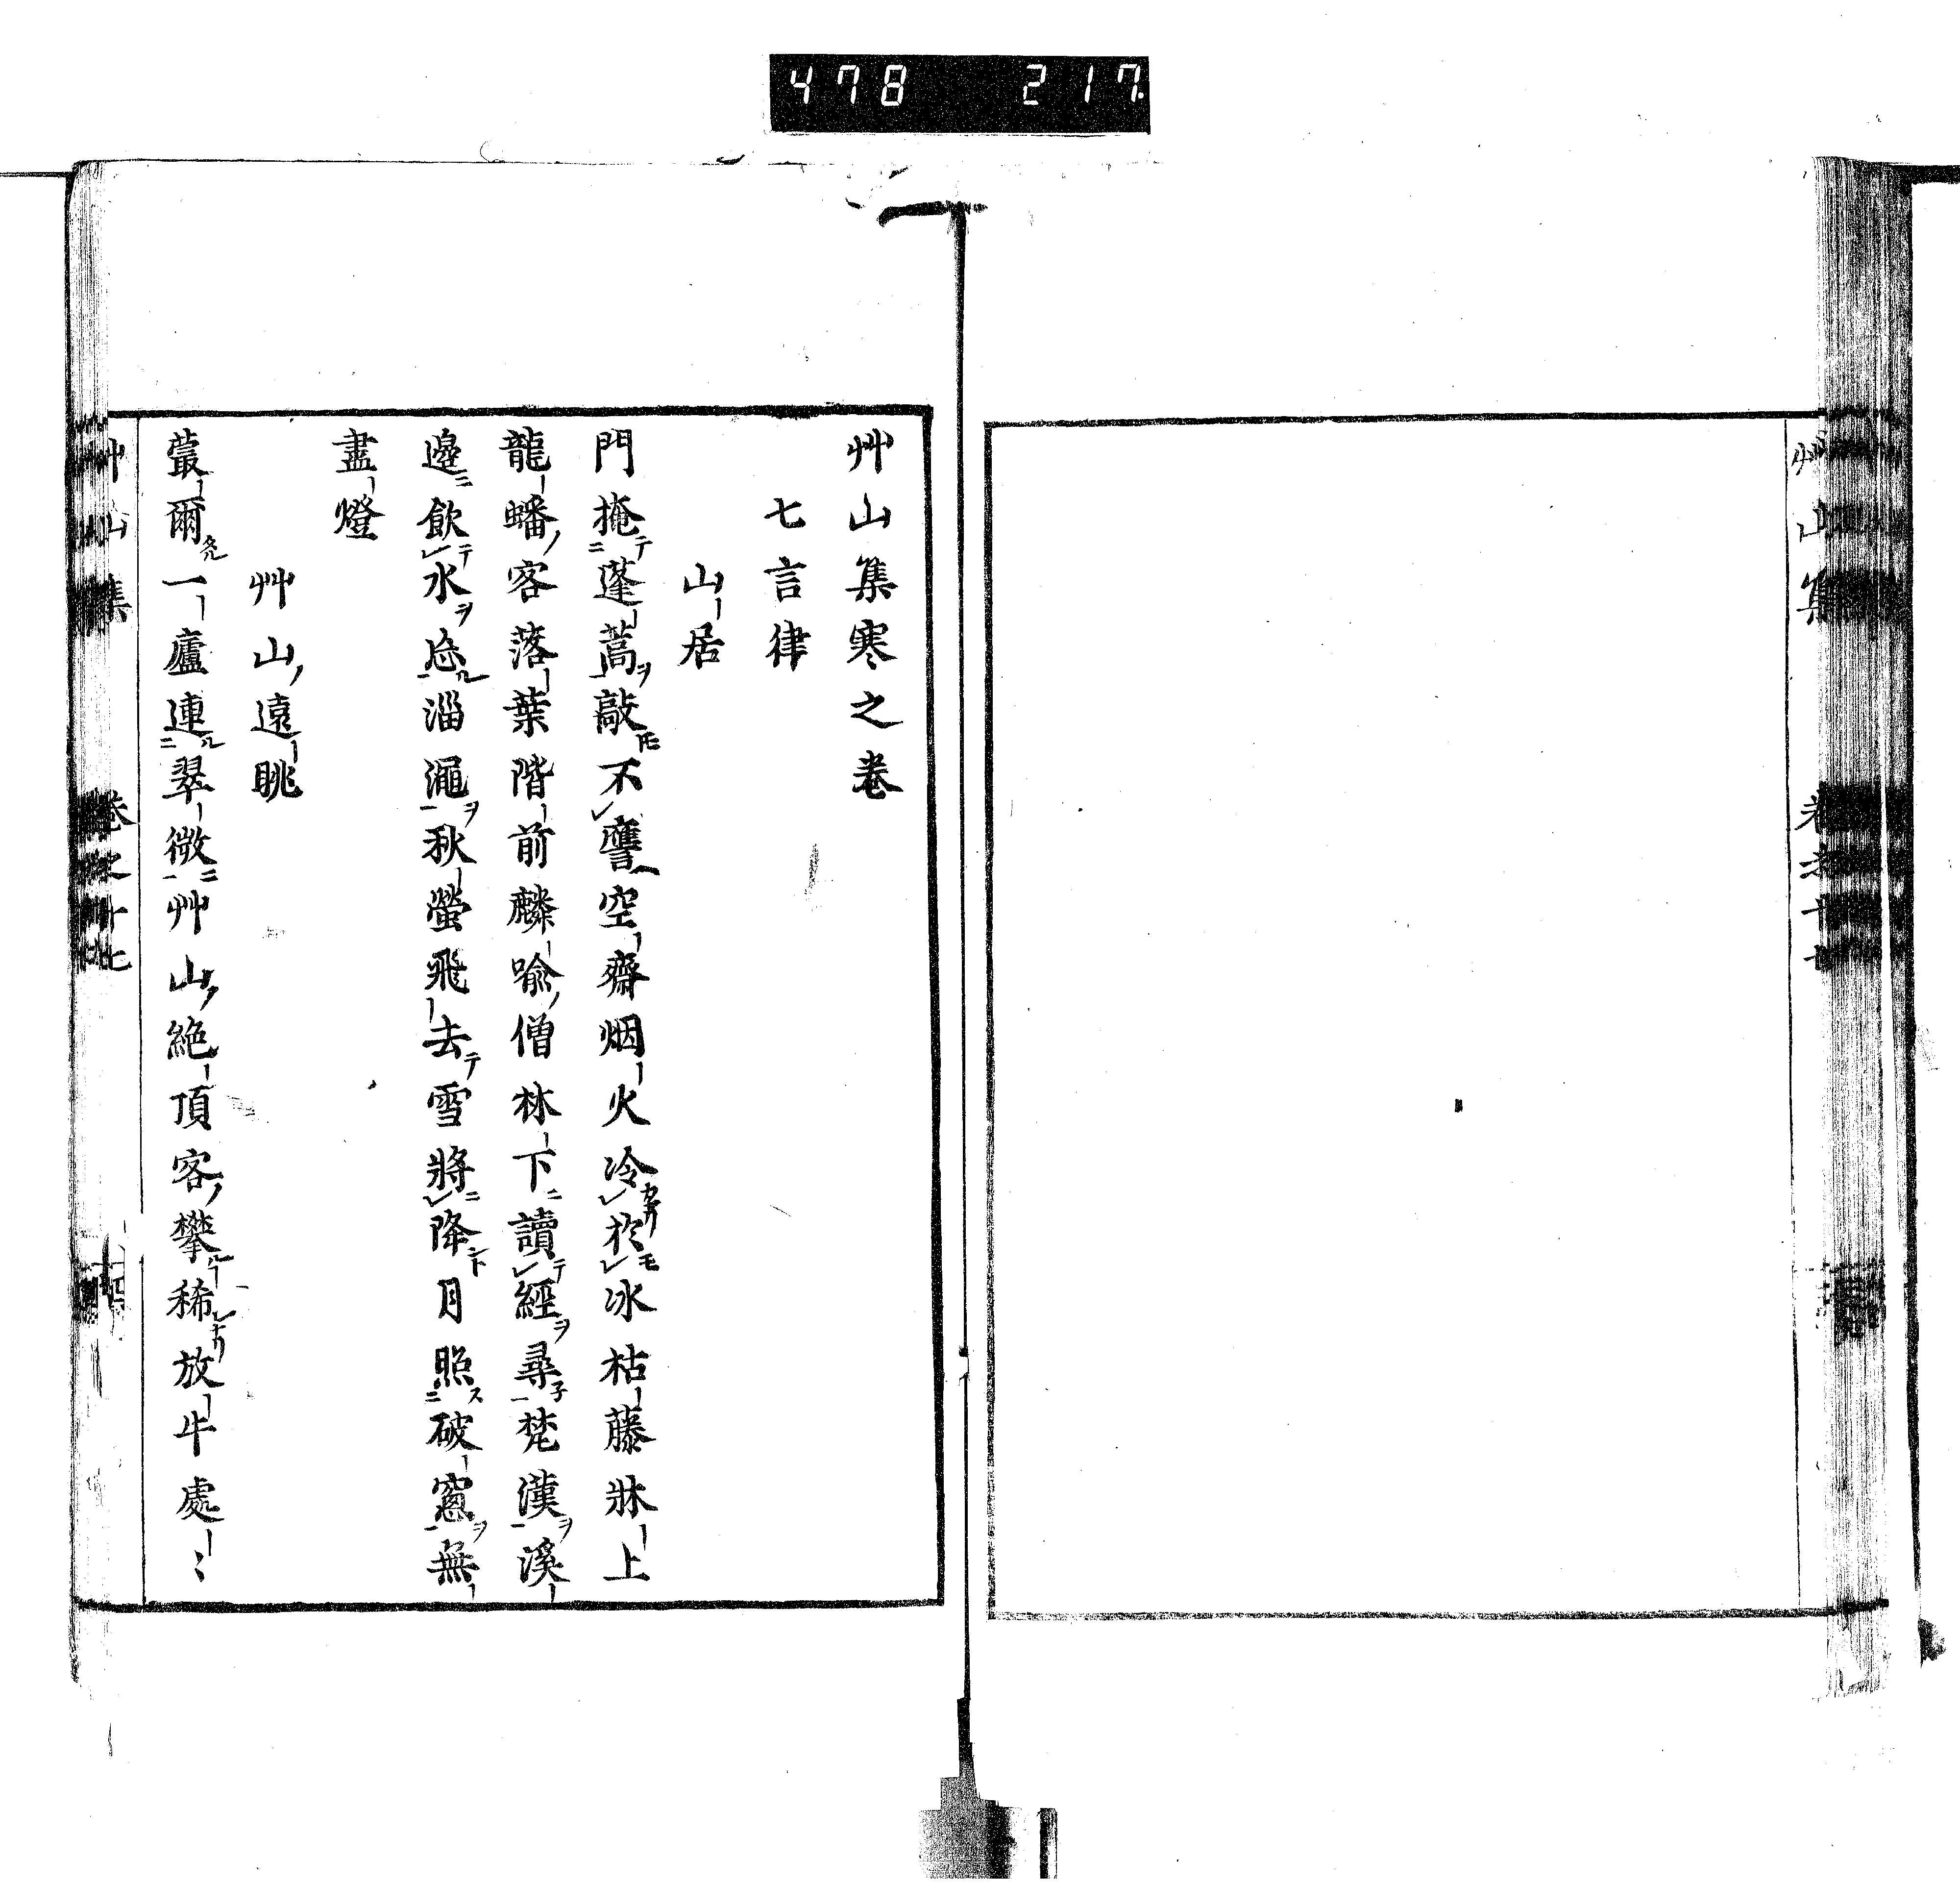 478 217
艸山集
艸山集寒之卷
七言律
山居
門掩蓬蒿敲不譍空齋烟火冷於冰枯藤牀上
龍蟠客落葉階前麟喻僧林下讀經尋梵漢溪
邊飲水忘淄澠秋螢飛去雪將降月照破窻無
盡燈
艸山遠眺
蕞爾一廬連翠微艸山絶頂客攀稀放牛處〻
艸山集 卷之十七